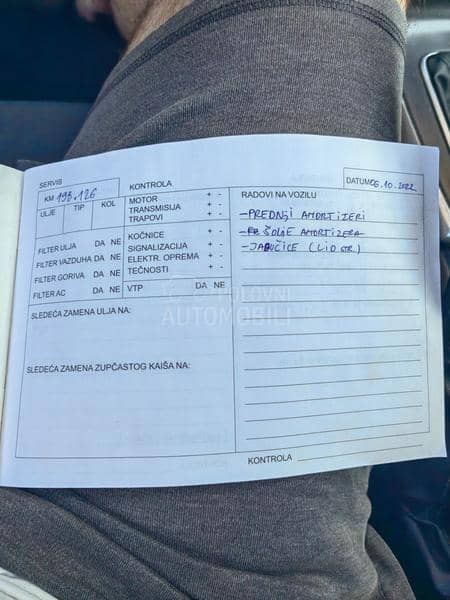 SERVIS
KM 193.126
ULJE TIP KOL
FILTER ULJA DA NE
FILTER VAZDUHA DA NE
FILTER GORIVA DA NE
FILTER AC DA NE
KONTROLA
MOTOR + -
TRANSMISIJA + -
TRAPOVI + -
KOČNICE + -
SIGNALIZACIJA + -
ELEKTR. OPREMA + -
TEČNOSTI + -
VTP DA NE
SLEDEĆA ZAMENA ULJA NA:
SLEDEĆA ZAMENA ZUPČASTOG KAIŠA NA:
DATUM 06.10.2022
RADOVI NA VOZILU
-PREDNJI AMORTIZERI
ŠOLJE AMORTIZERA
-JABUČICE
KONTROLA
POLOVNI
AUTOMOBILI